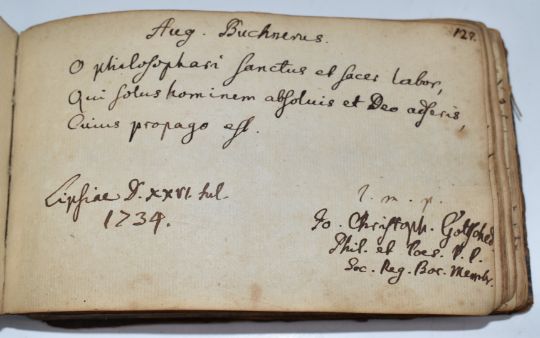 127.
Aug. Buchnerus.
O philosophari sanctus et sacer labor,
Qui solus hominem absoluis et Deo adseris,
Cuius propago est.
Lipsiae D. XXVI. Jul.
1734.
l. m. p.
Jo. Christoph. Gottsched
Phil. et Poes. P. P.
Soc. Reg. Bor. Membr.